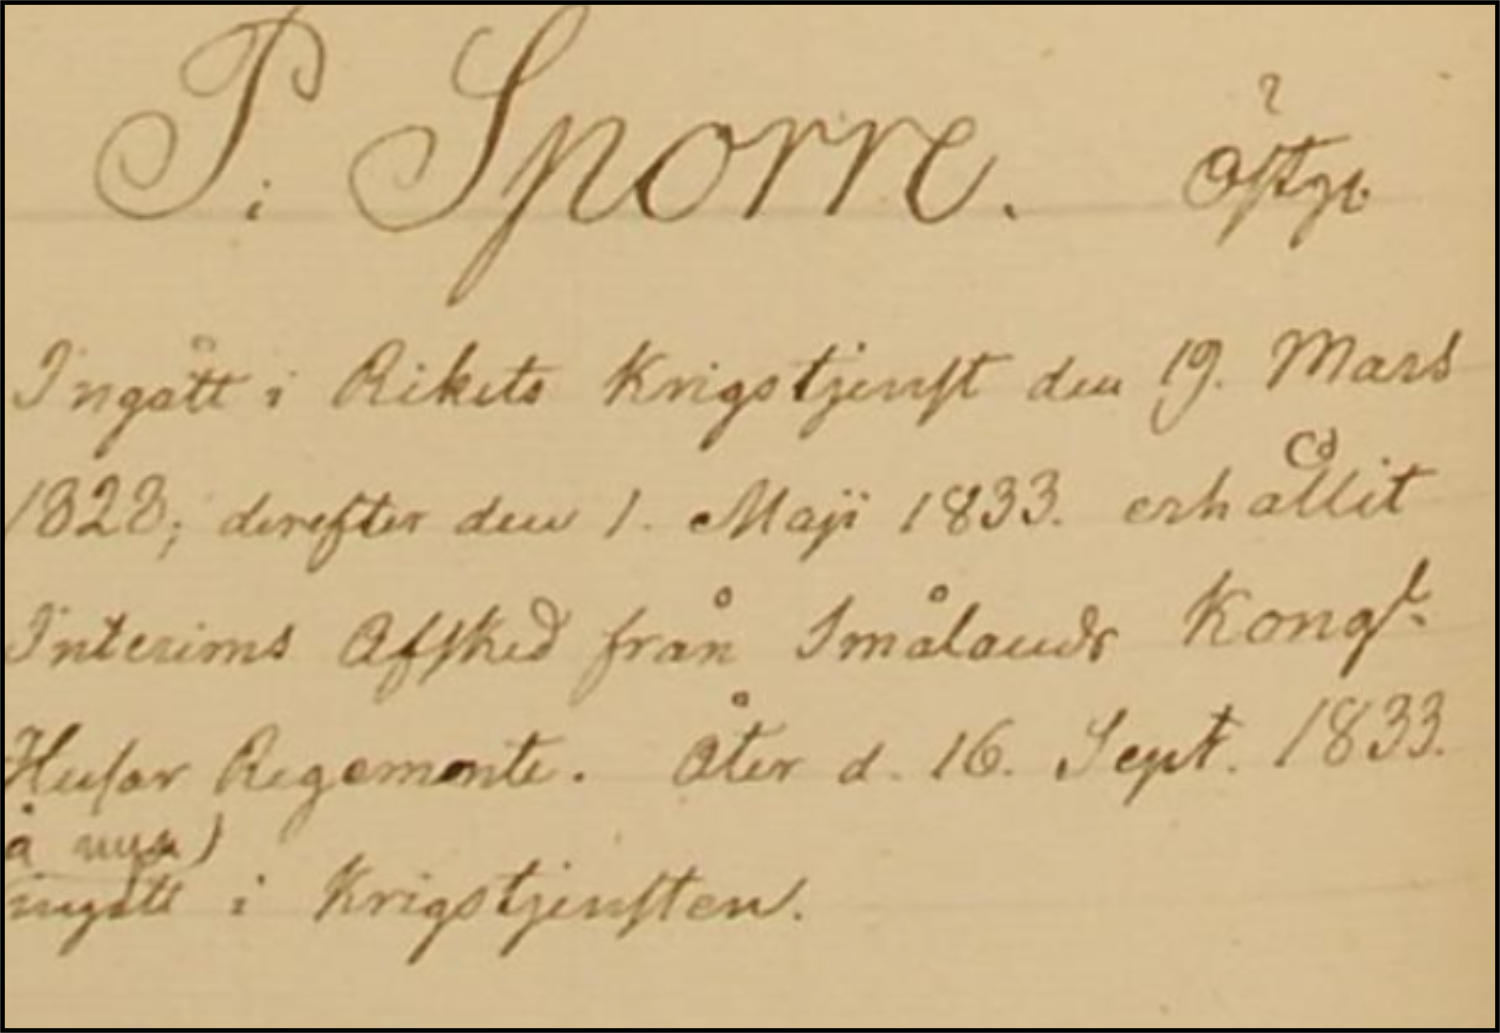 P. Sporre. ?
Östgb
Ingått i Rikets Krigstjenst den 19. Mars
1828; derefter den 1. Maji 1833. erhållit
Interims Afsked från Smålands Kongl.
Husar Regemente. Åter d. 16. Sept. 1833.
å nyo)
ingått i Krigstjensten.